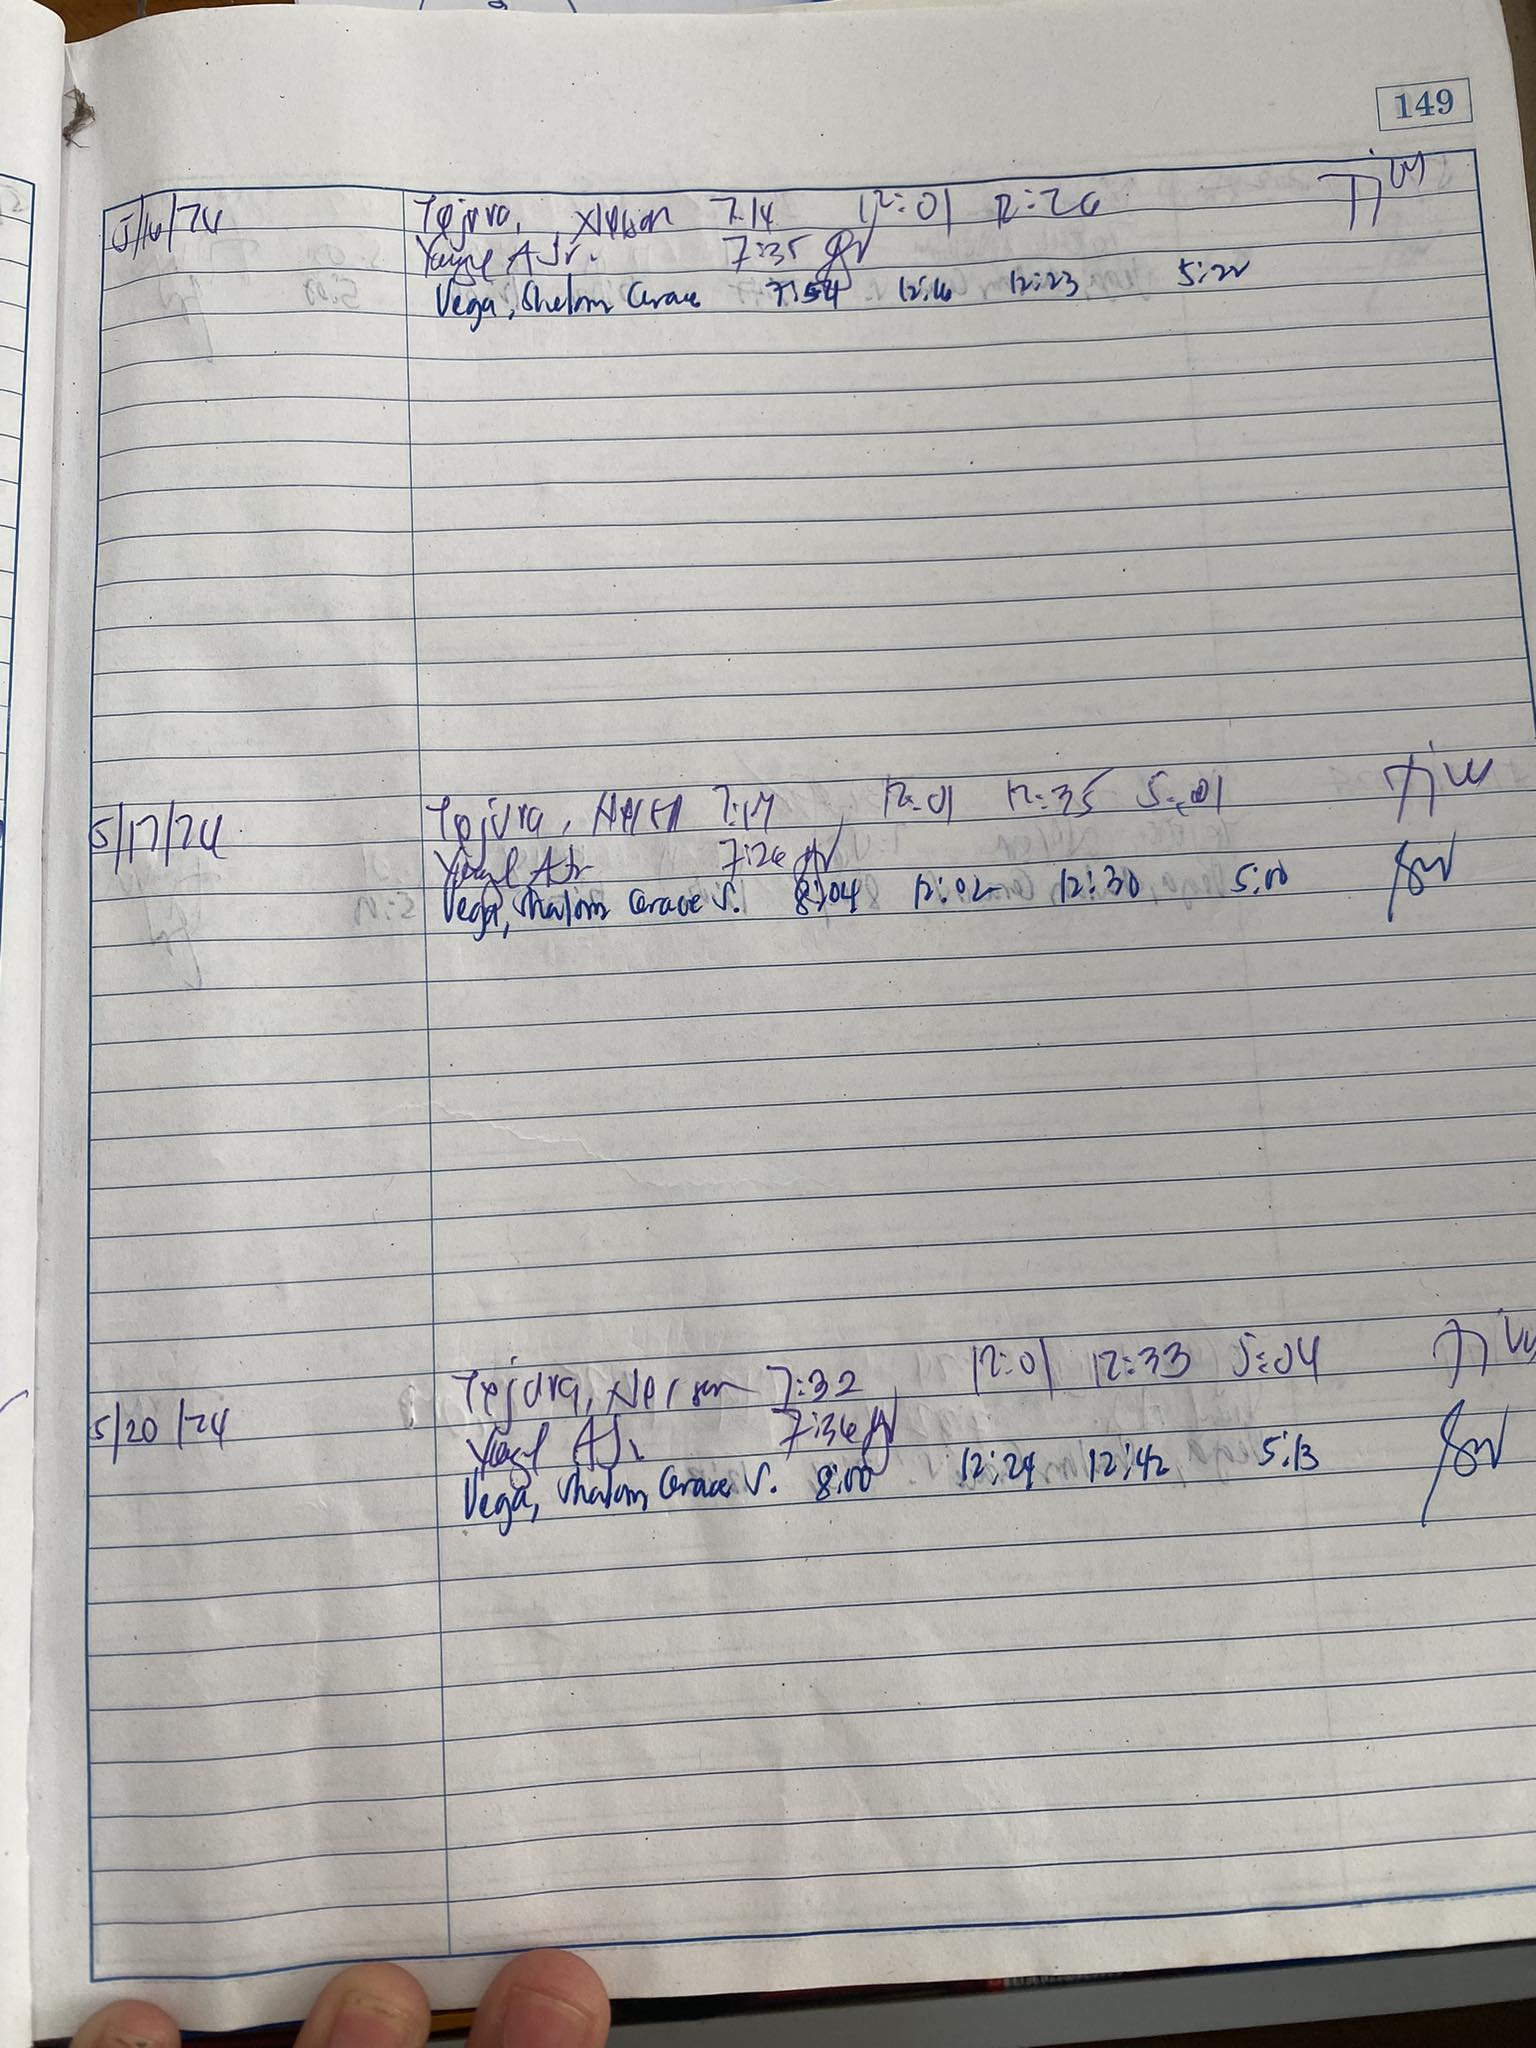 149
5/16/24 Tejora, Nelson 7:14 12:01 12:26
A Jr. 7:35
Vega, Shalom Grace 7:54 12:16 12:23 5:22
5/17/24 Tejora, Nelson 7:17 12:01 12:35 5:01
A Jr 7:26
Vega, Shalom Grace V. 8:04 12:02 12:30 5:00
5/20/24 Tejora, Nelson 7:32 12:01 12:33 5:04
A Jr. 7:36
Vega, Shalom Grace V. 8:00 12:24 12:42 5:13